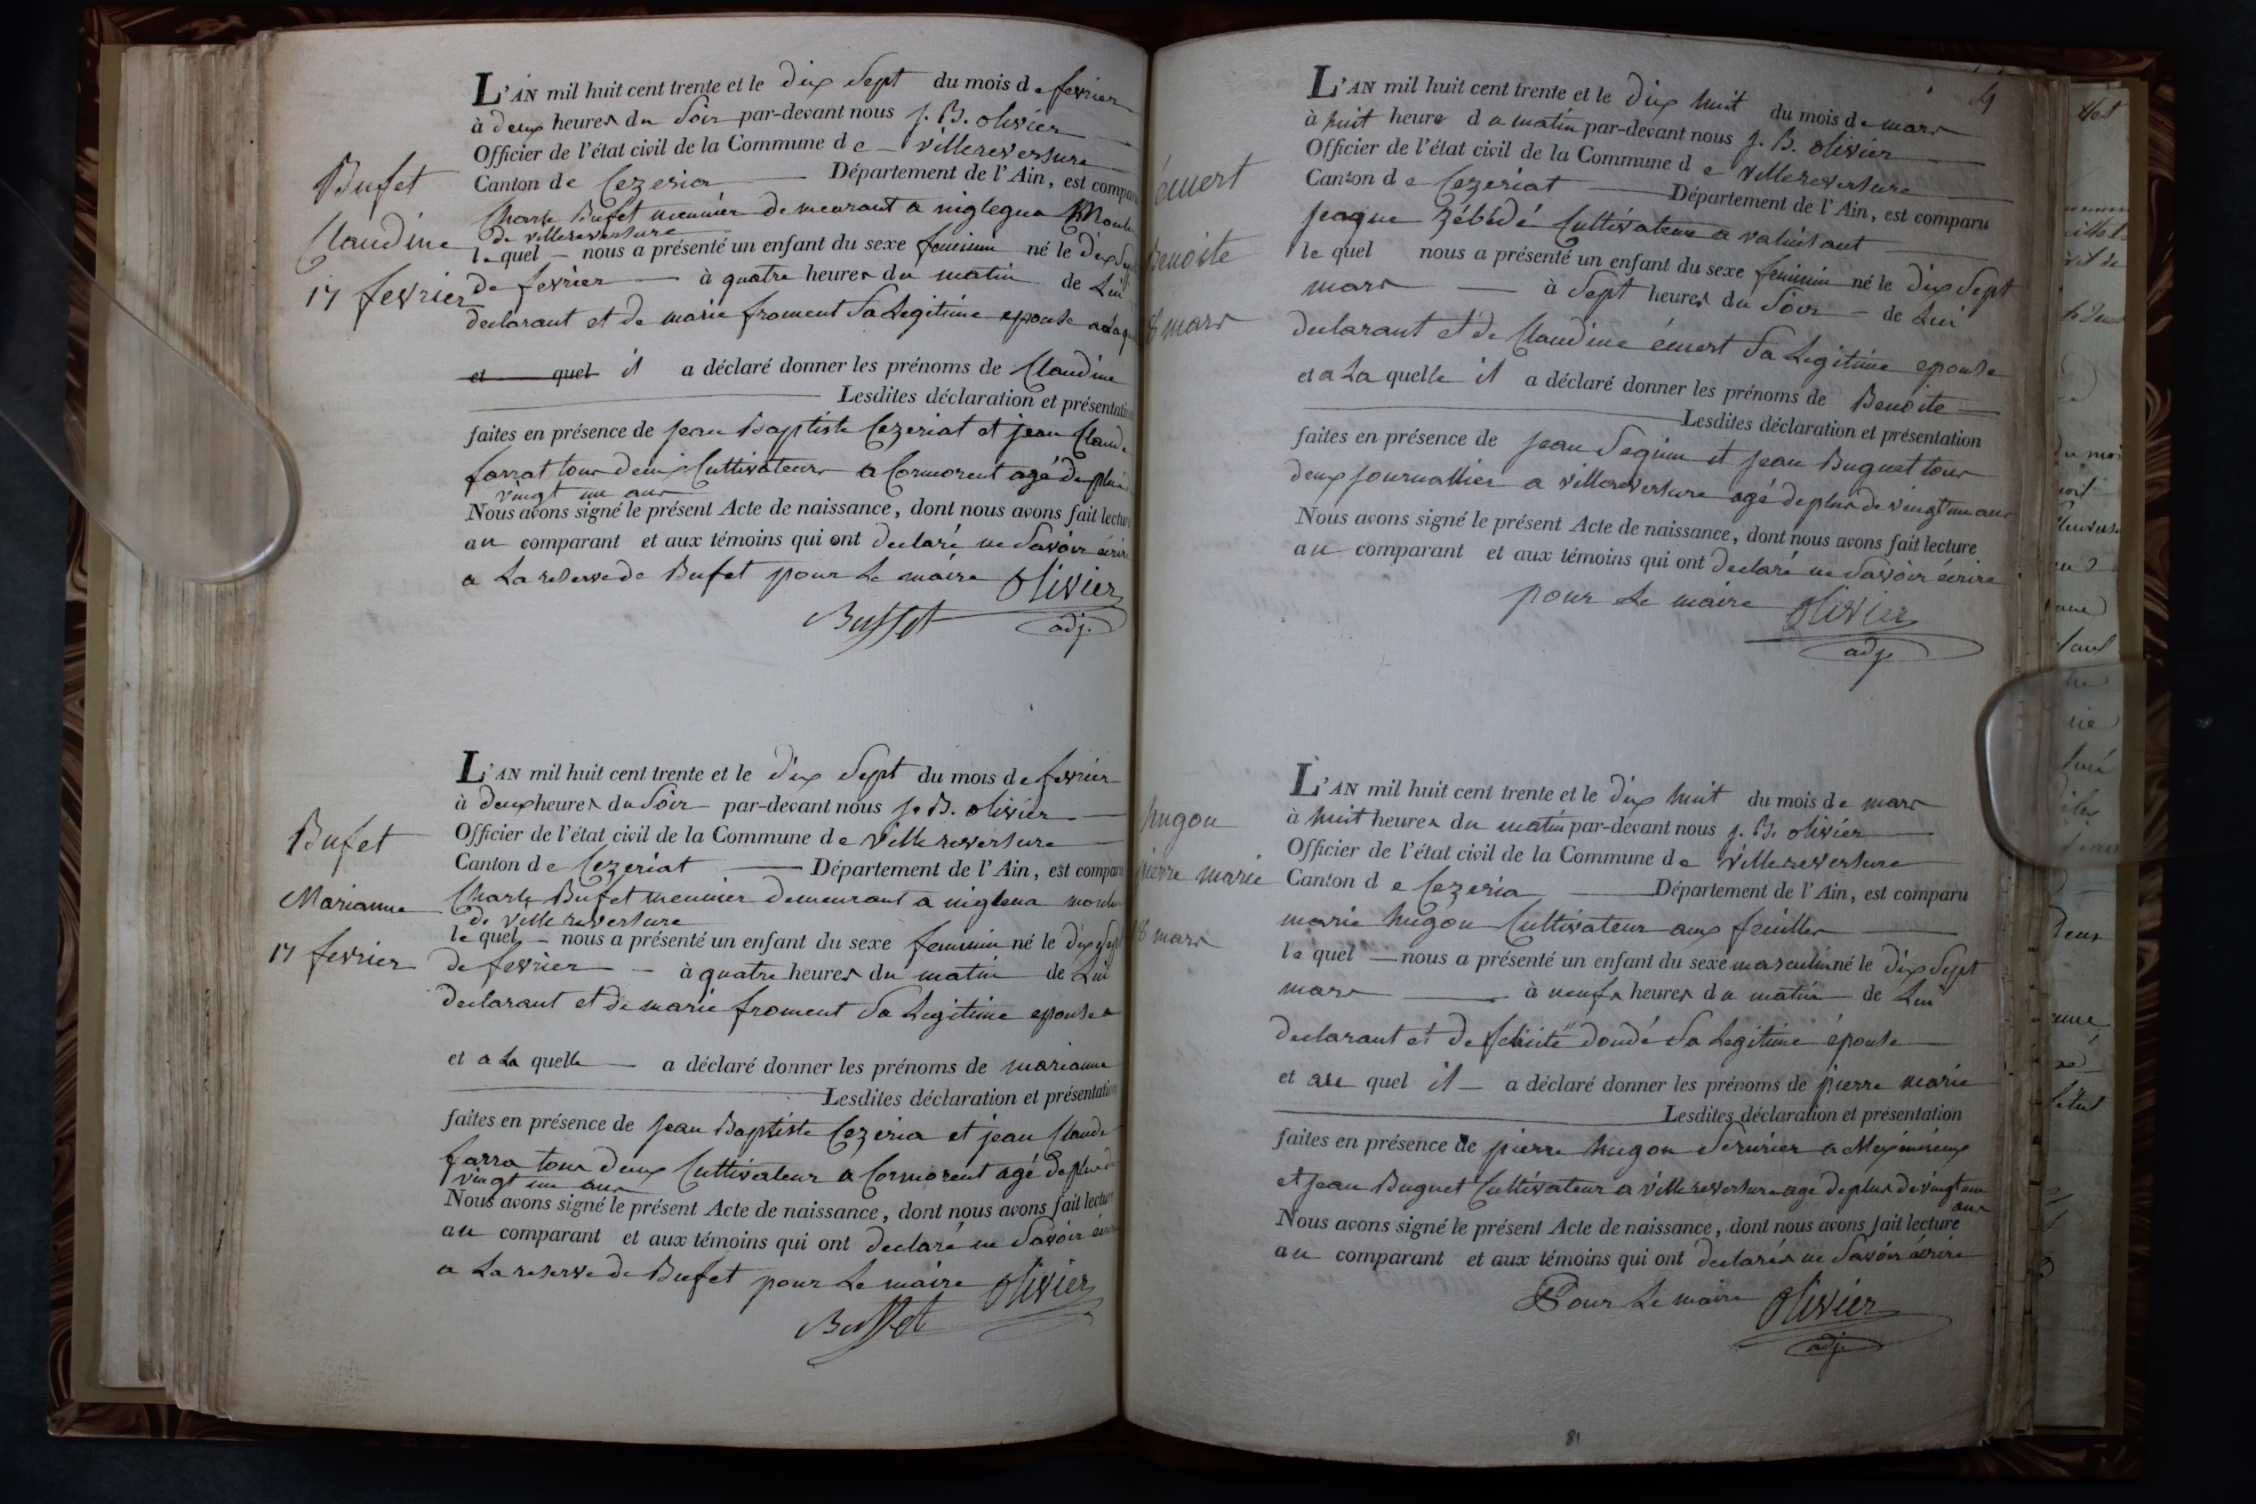 Bufet
Claudine
17 fevrier
L'AN mil huit cent trente et le dix sept du mois de fevrier
à deux heures du soir par-devant nous j. B. olivier
Officier de l'état civil de la Commune de villereversure
Canton de Cezeria Département de l'Ain, est compar
Charle Bufet meunier demeurant a
de villereversure
lequel nous a présenté un enfant du sexe feminin né le dix sept
de fevrier à quatre heures du matin de Lui
declarant et de marie froment sa Legitime epouse
et quel il a déclaré donner les prénoms de Claudine
Lesdites déclaration et présentation
faites en présence de jean Baptiste Cezeriat et jean Claude
farrat tous deux Cultivateurs a Cormorent agé de plus
vingt un ans
Nous avons signé le présent Acte de naissance, dont nous avons fait lecture
au comparant et aux témoins qui ont declaré ne savoir écrire
a La reserve de Bufet pour Le maire Olivier
Buffet adj.
Bufet
Marianne
17 fevrier
L'AN mil huit cent trente et le dix sept du mois de fevrier
à deux heures du soir par-devant nous j. B. olivier
Officier de l'état civil de la Commune de villereversure
Canton de Cezeriat Département de l'Ain, est compar
Charle Bufet meunier demeurant a
de villereversure
lequel nous a présenté un enfant du sexe feminin né le dix sept
de fevrier à quatre heures du matin de Lui
declarant et de marie froment sa Legitime epouse
et a La quelle a déclaré donner les prénoms de marianne
Lesdites déclaration et présentation
faites en présence de jean Baptiste Cezeria et jean Claude
farra tous deux Cultivateur a Cormorent agé de plus de
vingt un ans
Nous avons signé le présent Acte de naissance, dont nous avons fait lecture
au comparant et aux témoins qui ont declaré ne savoir écrire
a La reserve de Bufet pour Le maire Olivier
Buffet
émert
Benoite
18 mars
L'AN mil huit cent trente et le dix huit du mois de mars
à huit heure du matin par-devant nous j. B. olivier
Officier de l'état civil de la Commune de villereversure
Canton de Cezeriat Département de l'Ain, est comparu
jeaque Zébédé Cultivateur a valuisant
le quel nous a présenté un enfant du sexe feminin né le dix sept
mars à sept heures du soir de Lui
declarant et de Claudine émert sa Legitime epouse
et a La quelle il a déclaré donner les prénoms de Benoite
Lesdites déclaration et présentation
faites en présence de jean seguin et jean Buguet tous
deux journallier a villereversure agé de plus de vingt un ans
Nous avons signé le présent Acte de naissance, dont nous avons fait lecture
au comparant et aux témoins qui ont declaré ne savoir écrire
pour Le maire Olivier
adj.
hugon
pierre marie
18 mars
L'AN mil huit cent trente et le dix huit du mois de mars
à huit heures du matin par-devant nous j. B. olivier
Officier de l'état civil de la Commune de villereversure
Canton de Cezeria Département de l'Ain, est comparu
marie hugon Cultivateur aux feuilles
le quel nous a présenté un enfant du sexe masculin né le dix sept
mars à neufs heures du matin de Lui
declarant et de felicité doudé sa Legitime épouse
et au quel il a déclaré donner les prénoms de pierre marie
Lesdites déclaration et présentation
faites en présence de pierre hugon serurier a Meximieux
et jean Buguet Cultivateur a villereversure agé de plus de vingt un
ans
Nous avons signé le présent Acte de naissance, dont nous avons fait lecture
au comparant et aux témoins qui ont declarés ne savoir écrire
Pour Le maire Olivier
adj.
81